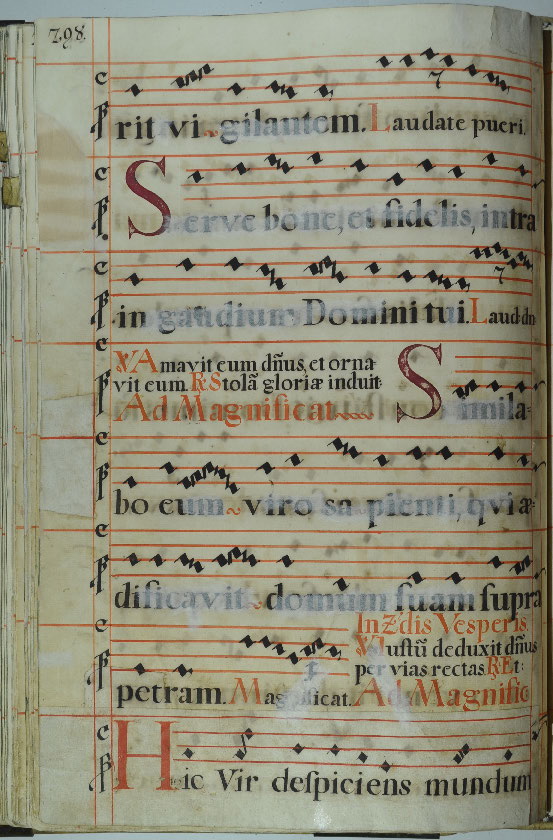 298.
rit vi~gilantem. Laudate pueri.
Serve bone, et fidelis, intra
in gaudium Domini tui. Laud. dn
℣ Amavit eum dñus, et orna-
vit eum. ℟ Stolã gloriæ induit.
Ad Magnificat Simila-
bo eum~ viro sapienti, qui æ-
dificavit~ domum suam supra
In 2.dis Vesperis.
℣ Iustũ deduxit dñus
petram. Magnificat. per vias rectas ℟ Et:
Ad Magnific
Hic Vir despiciens mundum